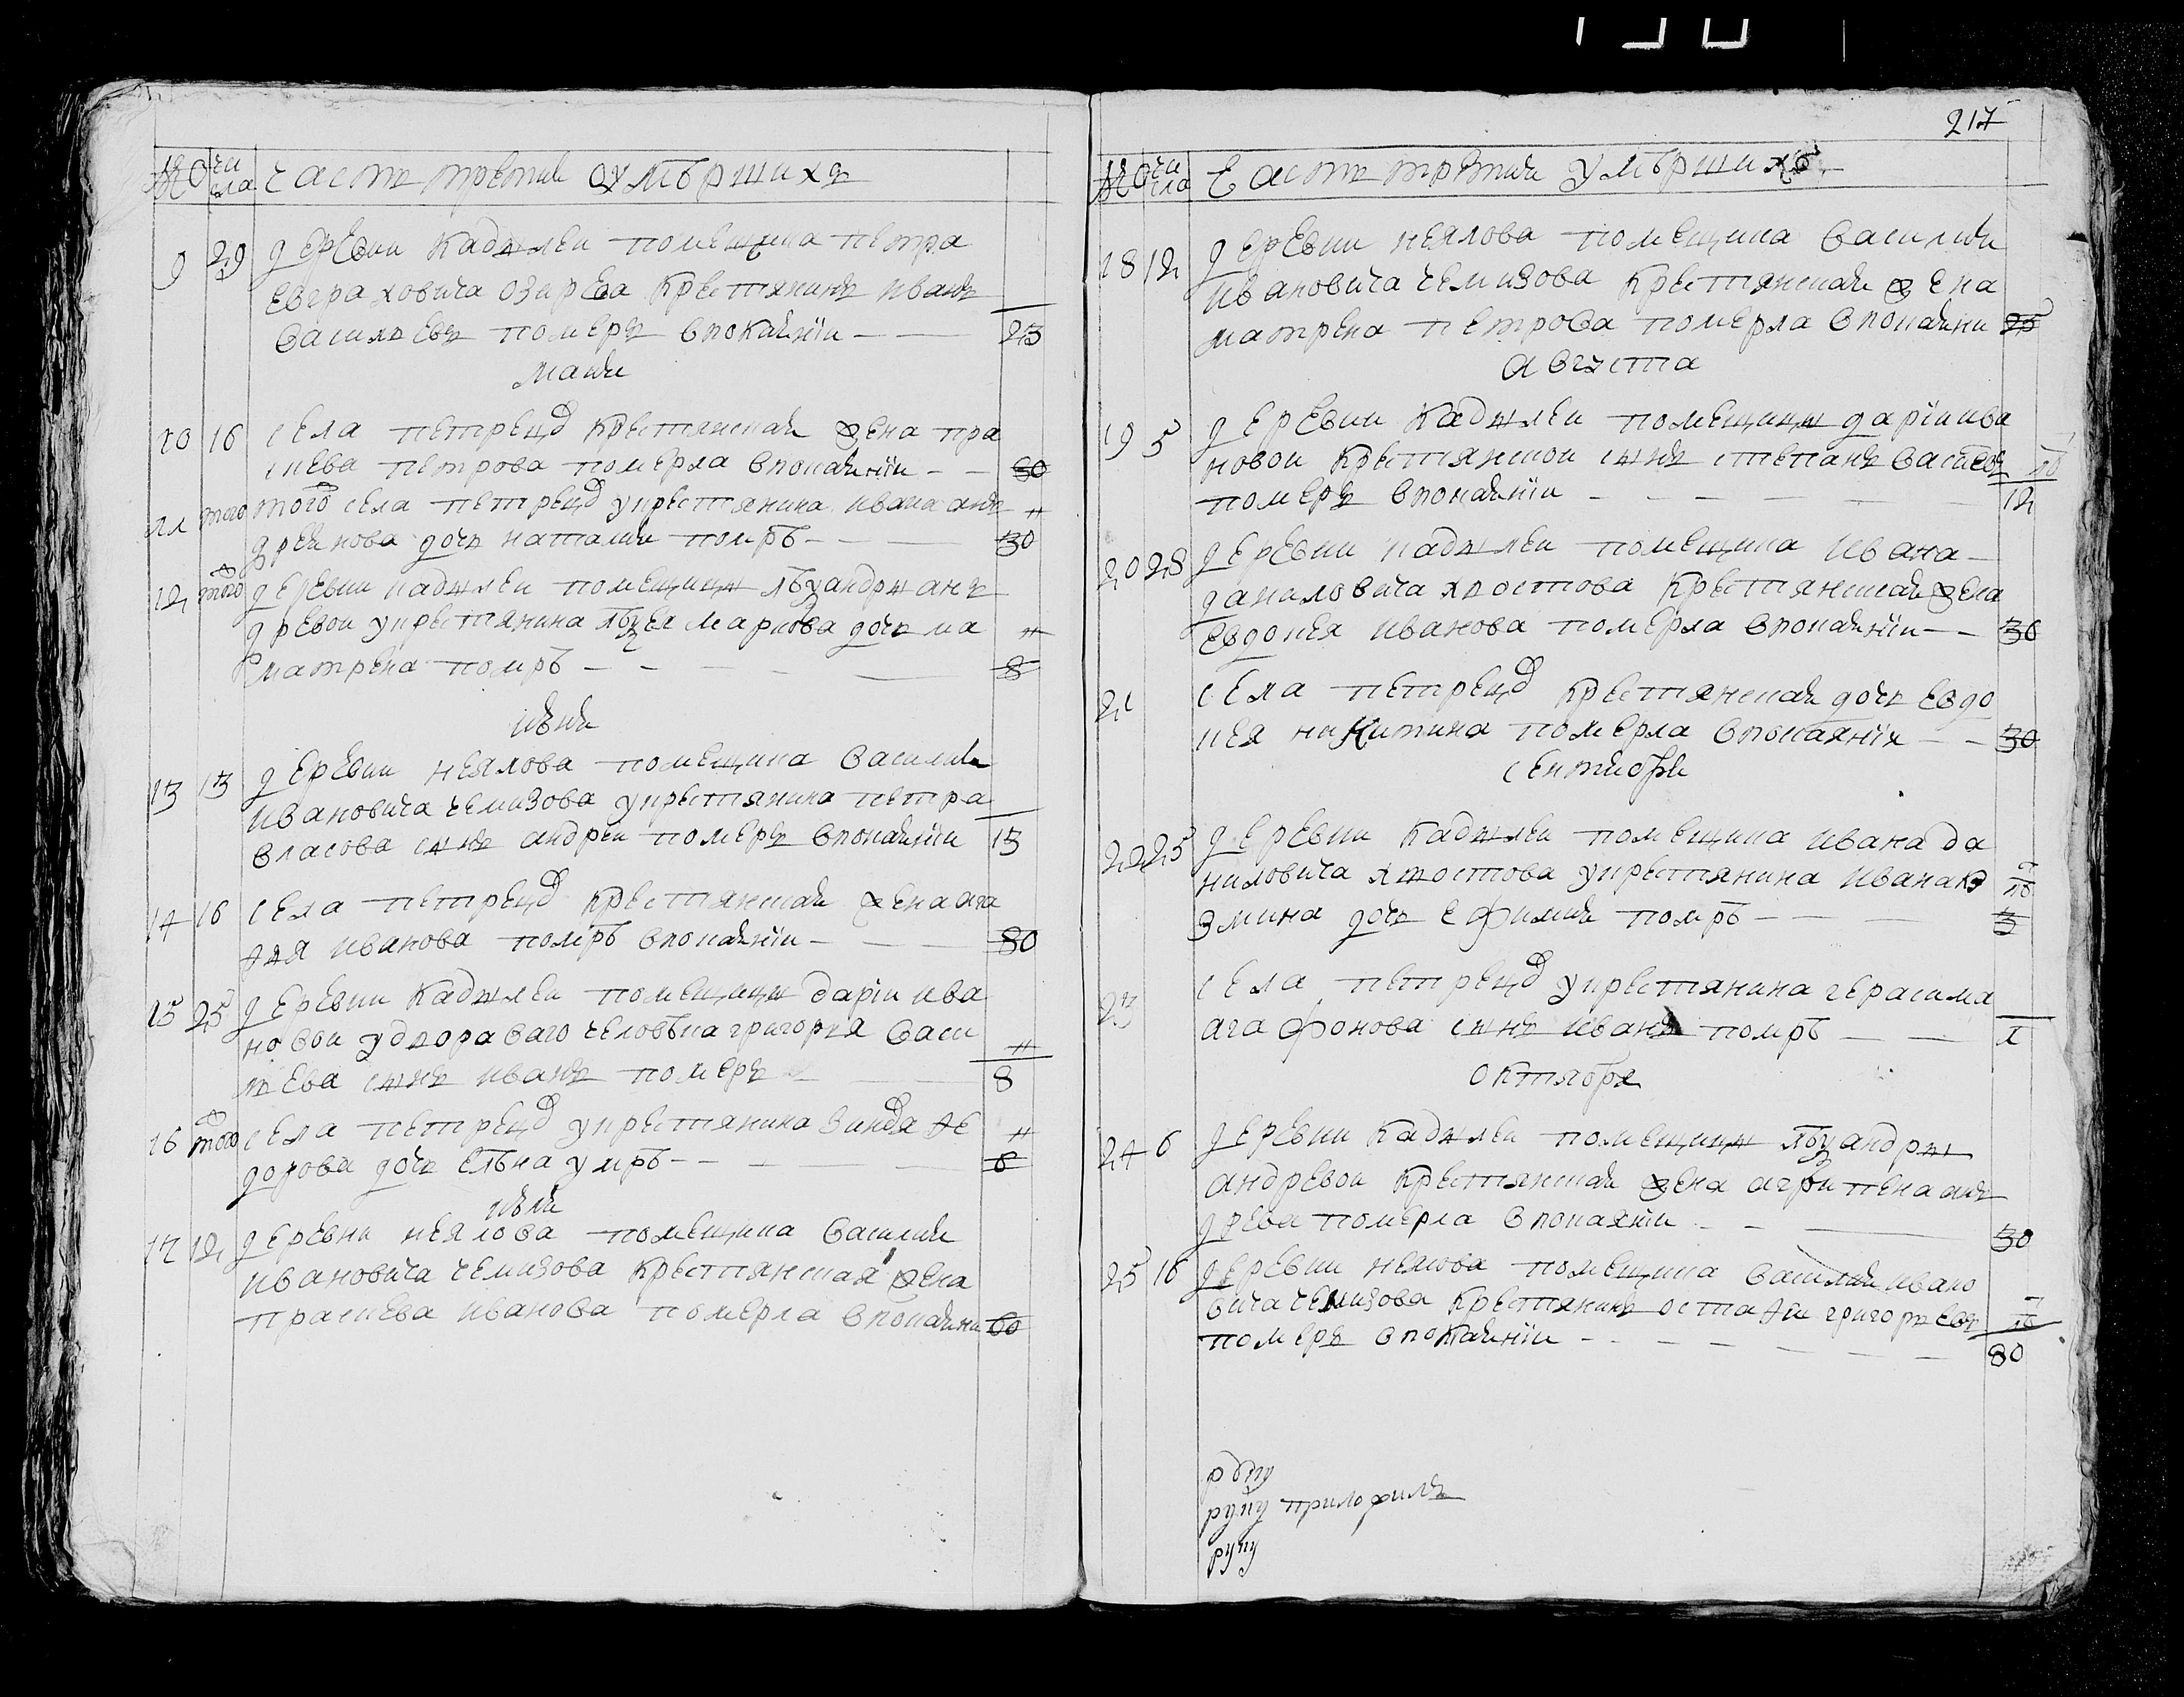 № чи сла часть третия ȣмѣрших
9 29 деревни кадылеи помещика петра
Евграховича озирева крестянинъ иванъ
Васильевъ померъ впокаянїи — — 23
маия
10 16 села петрецо крестянская жена пра
сков[ья] петрова померла впокаянїи — — 60
11 того того села петрецо укрестянина ивана анъ
дреянова дочь наталия помрѣ — — 30
12 того деревни кадылеи помещицы
древои укрестянина маркова дочь ма
матрена помрѣ — — — 8
июня
13 13 деревни неялова помещика василия
ивановича чемизова укрестянина петра
власова сынъ андреи померъ впокаянїи 13
14 16 села петрецо крестянская жена ага
ѳия иванова помрѣ впокаянїи — — 80
15 25 деревни кадылеи помещицы дарїи ива
новои удвороваго человѣка григорья васи
лева сынъ иванъ померъ — 8
16 того села петрецо укрестянина ѳе
дорова дочь елѣна умрѣ — — 6
июля
17 12 деревни неялова помещика василия
ивановича чемизова крестянская жена
праскева иванова померла впокаяни 60
217
№ чи сла часть третия умѣршихъ
18 12 деревни неялова помещика василия
ивановича чемизова крестянская жена
матрена петрова померла впокаяни 25
августа
19 5 деревни кадылеи помещицы дарїи ива
новои крестянскои сынъ степанъ
померъ впокаянїи — — — 12
20 28 деревни кадылеи помещика ивана
даниловича хвостова крестянская жена
евдокея иванова померла впокаянїи — — 30
21 села петрецо крестянская дочь евдо
кея никитина померла впокаянїи — — 30
сентября
22 25 деревни кадылеи помещика ивана да
ниловича хвостова укрестянина ивана ко
змина дочь ефимия помрѣ — — 3
23 села петрецо укрестянина герасима
агафонова сынъ иванъ помрѣ — — 1
октября
24 6 деревни кадылеи помещицы
андревои крестянская жена агрипена анъ
древа померла впокаянїи — — 30
25 16 деревни неялова помещика василия ивано
вича чемизова крестянинъ остаѳїи григорьевъ
померъ впокаянїи — — — 80
руку
руку приложилъ
руку